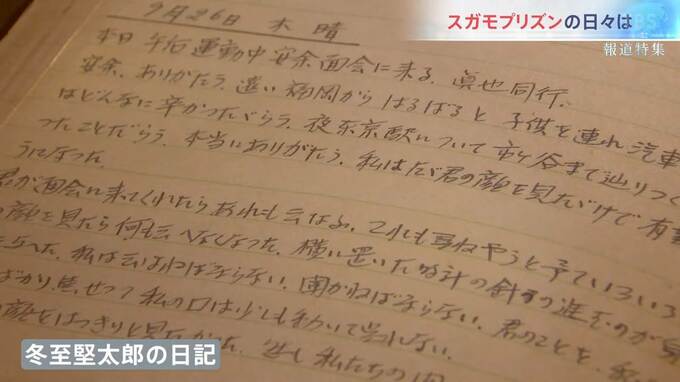 スガモプリズンの日々は
報道特集
9月26日 木 晴
本日 午后 運動中 安余面会に来る。眞也同行。
安余、ありがたう。遠い福岡からはるばると 子供を連れ 汽車
はどんなに辛かったゞらう。夜東京駅について市ヶ谷まで辿りつく
ったことだらう。本当にありがたう。私はたゞ君の顔を見たゞけで
うになった。
君が面会に来てくれたら
顔を見たら何も云へなくなった。横に置いた時計の針の進むのが
私は云はねばならない、聞かねばならない。君のことを、
ばかり焦せって 私の口は少しも動いて
冬至堅太郎の日記